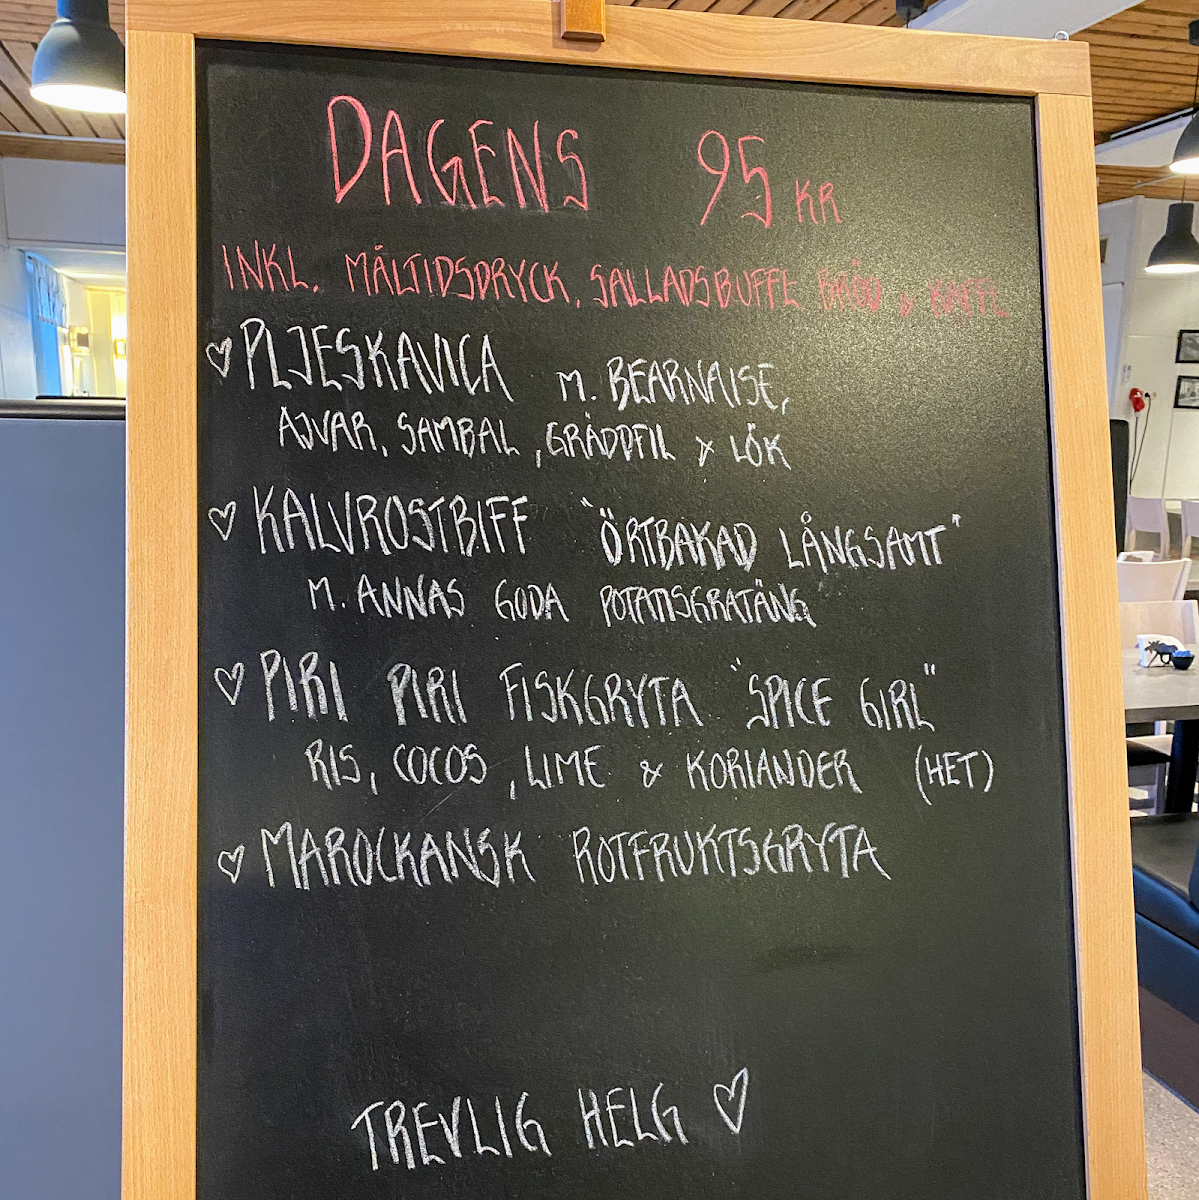 DAGENS 95 KR
INKL. MÅLTIDSDRYCK, SALLADSBUFFE BRÖD & KAFFE
♡ PLJESKAVICA M. BEARNAISE,
AJVAR, SAMBAL, GRÄDDFIL & LÖK
♡ KALVROSTBIFF "ÖRTBAKAD LÅNGSAMT"
M. ANNAS GODA POTATISGRATÄNG
♡ PIRI PIRI FISKGRYTA "SPICE GIRL"
RIS, COCOS, LIME & KORIANDER (HET)
♡ MAROCKANSK ROTFRUKTSGRYTA
TREVLIG HELG ♡